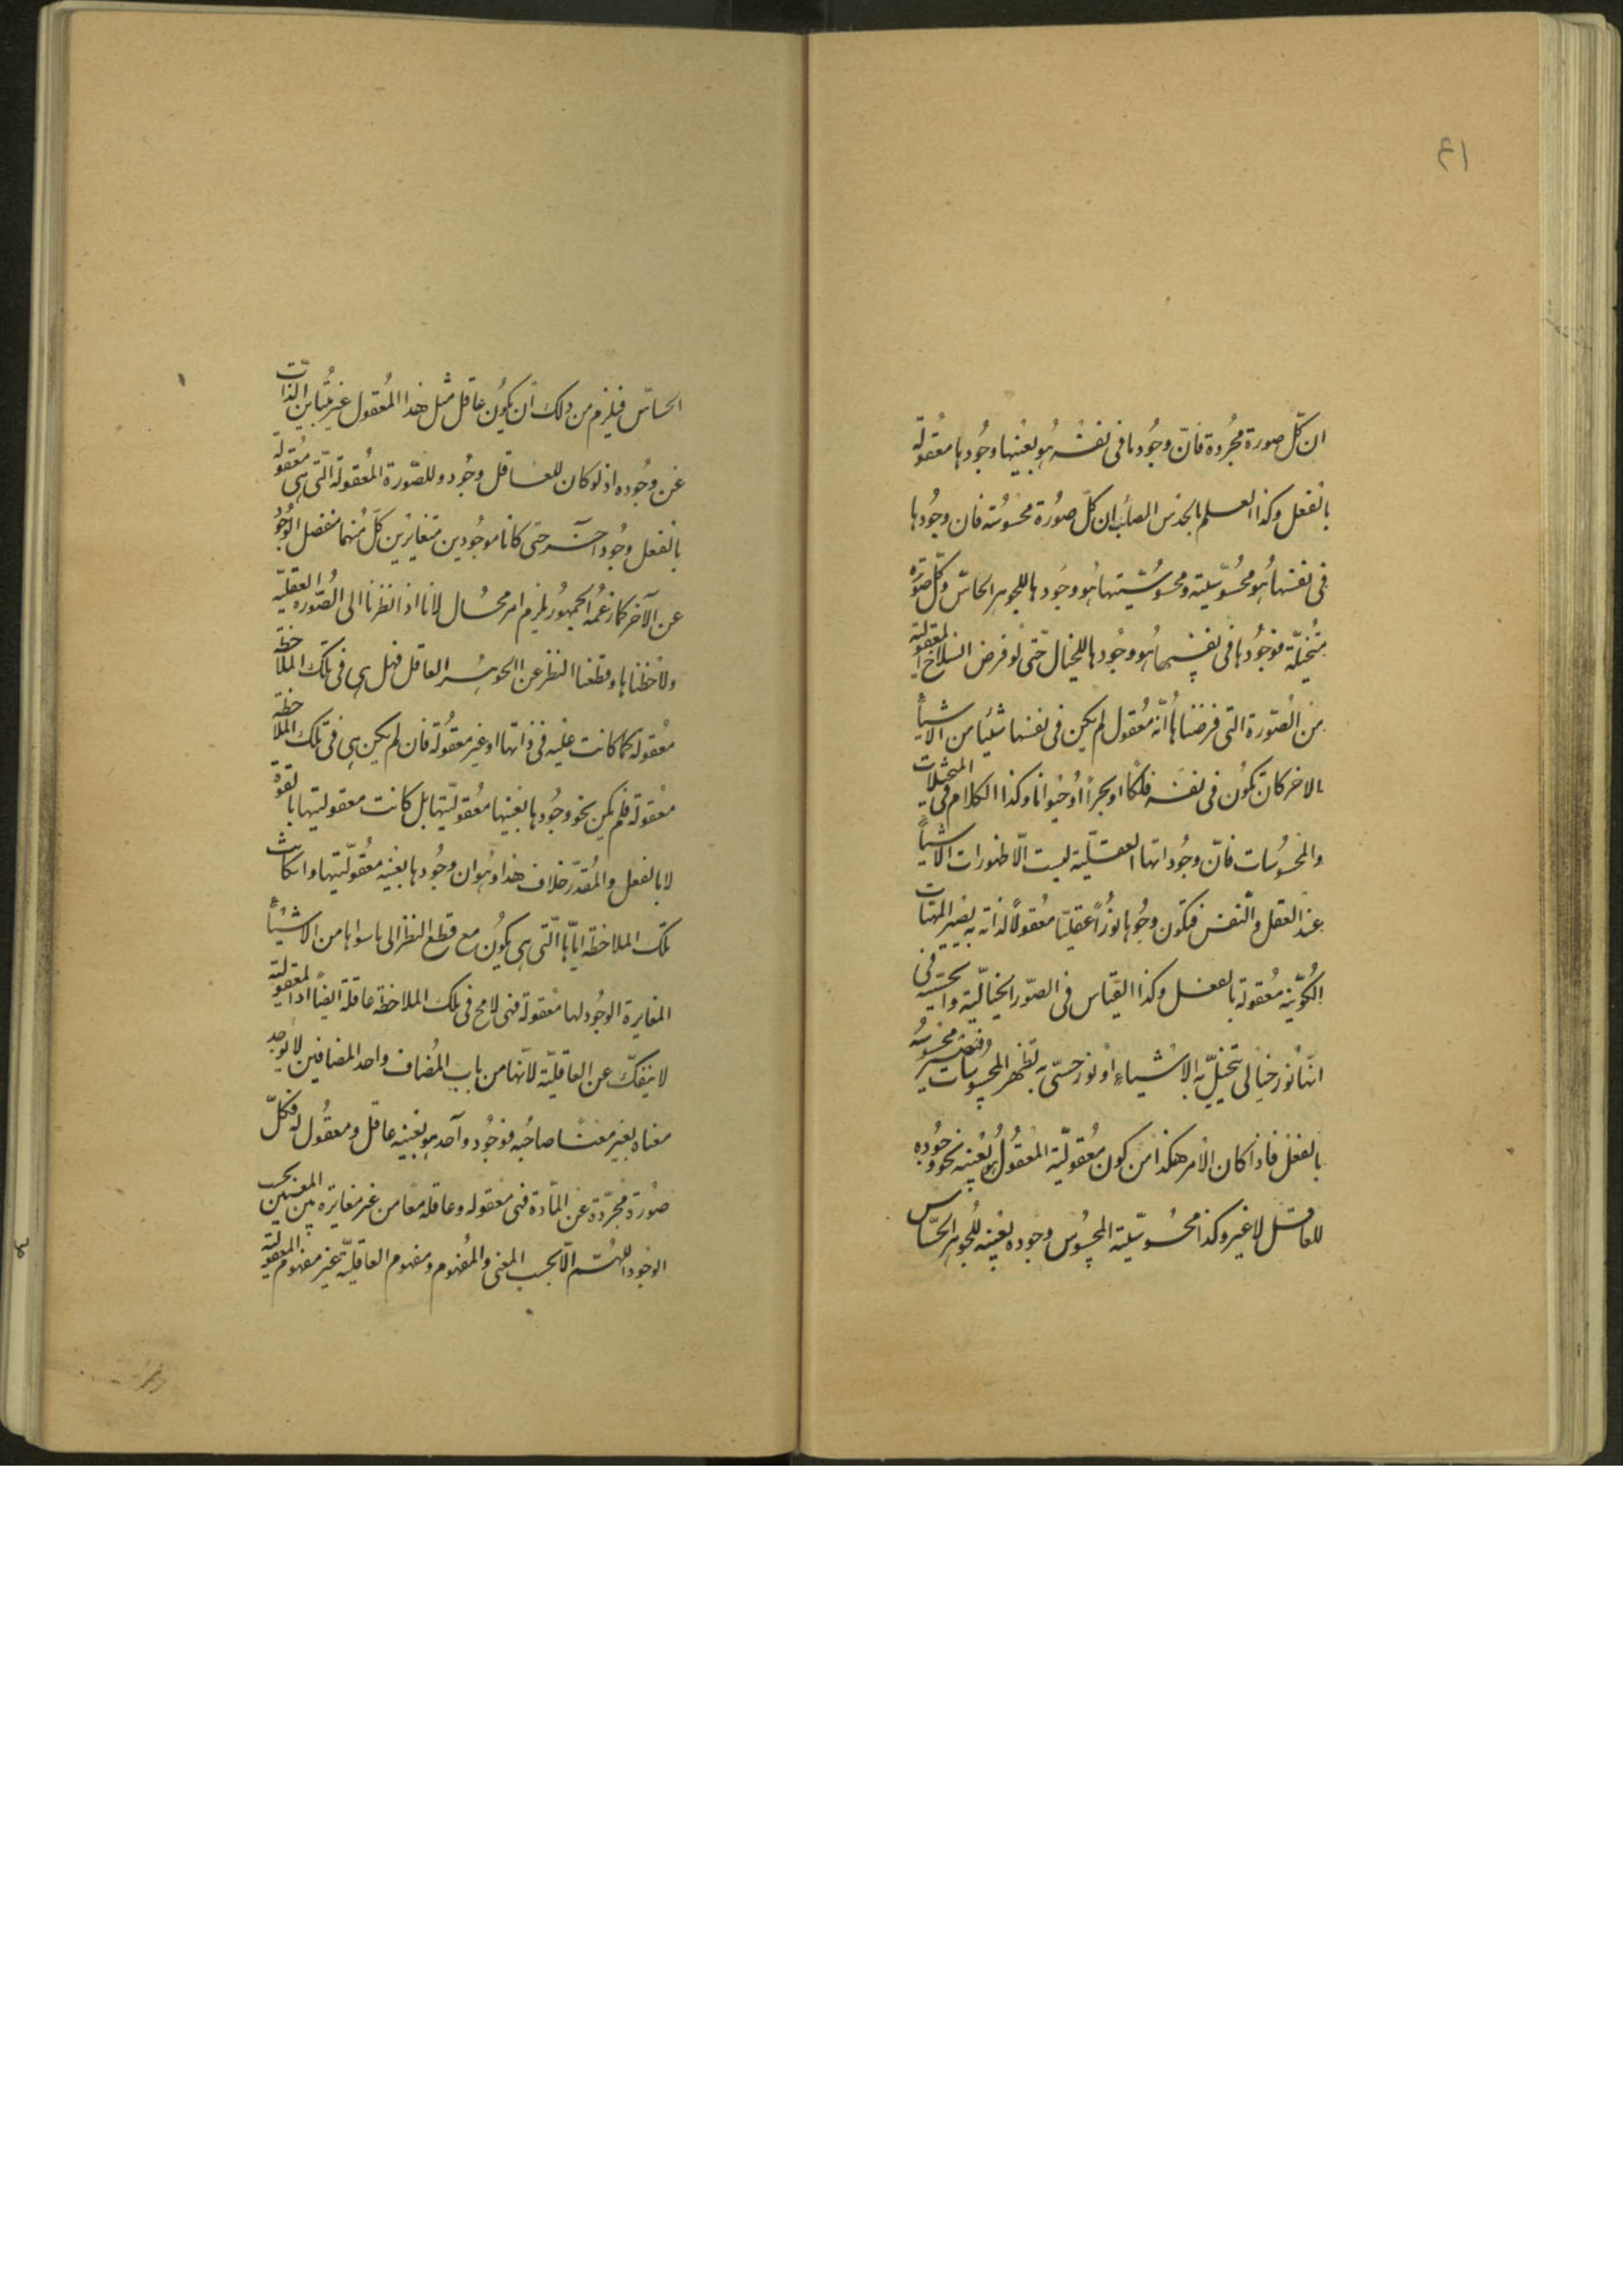 ٤١
ان كلّ صورة مجردة فانّ وجودها فى نفسه هو بعينها وجودها معقولة
بالفعل وكذا العلم بالحدس الصائب ان كلّ صورة محسوسة فان وجودها
فى نفسها هو محسوسيته ومحسوسيتها هو وجودها للجوهر الحاسّ وكلّ صورة
متخيلة فوجودها فى نفسها هو وجودها للخيال حتّى لو فرض انسلاخ المعقولية
من الصّورة التى فرضناها انّه معقول لم يكن فى نفسها شيئا من الاشياء
الاخر كان تكون فى نفسه فلكا او بحراً او حيوانا وكذا الكلام فى المتخيلات
والمحسوسات فانّ وجوداتها العقلية ليست الّا ظهورات الاشياء
عند العقل والنفس فيكون وجوها نوراً عقليّا معقولاً لذاته به يصير المهيّات
الكونية معقولة بالفعل وكذا القياس فى الصّور الخياليّة والحسّية فى
انّها نور خيالى يتخيّل به الاشياء او نور حسّى به تظهر المحسوسات وتصير محسوسة
بالفعل فاذا كان الأمر هكذا من كون معقوليّة المعقول هو بعينه نحو وجوده
للعاقل لا غير وكذا محسوسيّة المحسوس وجوده بعينه للجوهر الحسّاس
الحسّاس فيلزم من ذلك ان يكون عاقل مثل هذا المعقول غير متباين الذات
عن وجوده اذ لو كان للعاقل وجود وللصّورة المعقولة الّتى هى معقولة
بالفعل وجود آخر حتى كانا موجودين متغايرين كلّ منهما منفصل الوجود
عن الآخر كما زعمه الجمهور يلزم امر محال لانا اذا نظرنا الى الصّورة العقليّة
ولاحظناها وقطعنا النظر عن الجوهر العاقل فهل هى فى تلك الملاحظة
معقولة كما كانت عليه فى ذاتها او غير معقولة فان لم يكن هى فى تلك الملاحظة
معقولة فلم يكن نحو وجودها بعينها معقوليّتها بل كانت معقوليتها بالقوة
لا بالفعل والمقدّر خلاف هذا وهو ان وجودها بعينه معقوليّتها وان كانت
تلك الملاحظة ايّاها الّتى هى يكون مع قطع النظر الى ما سواها من الاشياء
المغايرة الوجود لها معقولة فهى لا مح فى تلك الملاحظة عاقلة ايضاً اذ المعقولية
لا ينفكّ عن العاقليّة لانّها من باب المضاف واحد المضافين لا يوجد
معناه بغير معنا صاحبه فوجود واحد هو بعينه عاقل ومعقول له فكلّ
صورة مجرّدة عن المّادة فهى معقوله وعاقله معا من غير مغايرة بين المعنيين بحسب
الوجود اللهمّ الّا بحسب المعنى والمفهوم ومفهوم العاقليّة غير مفهوم المعقولية